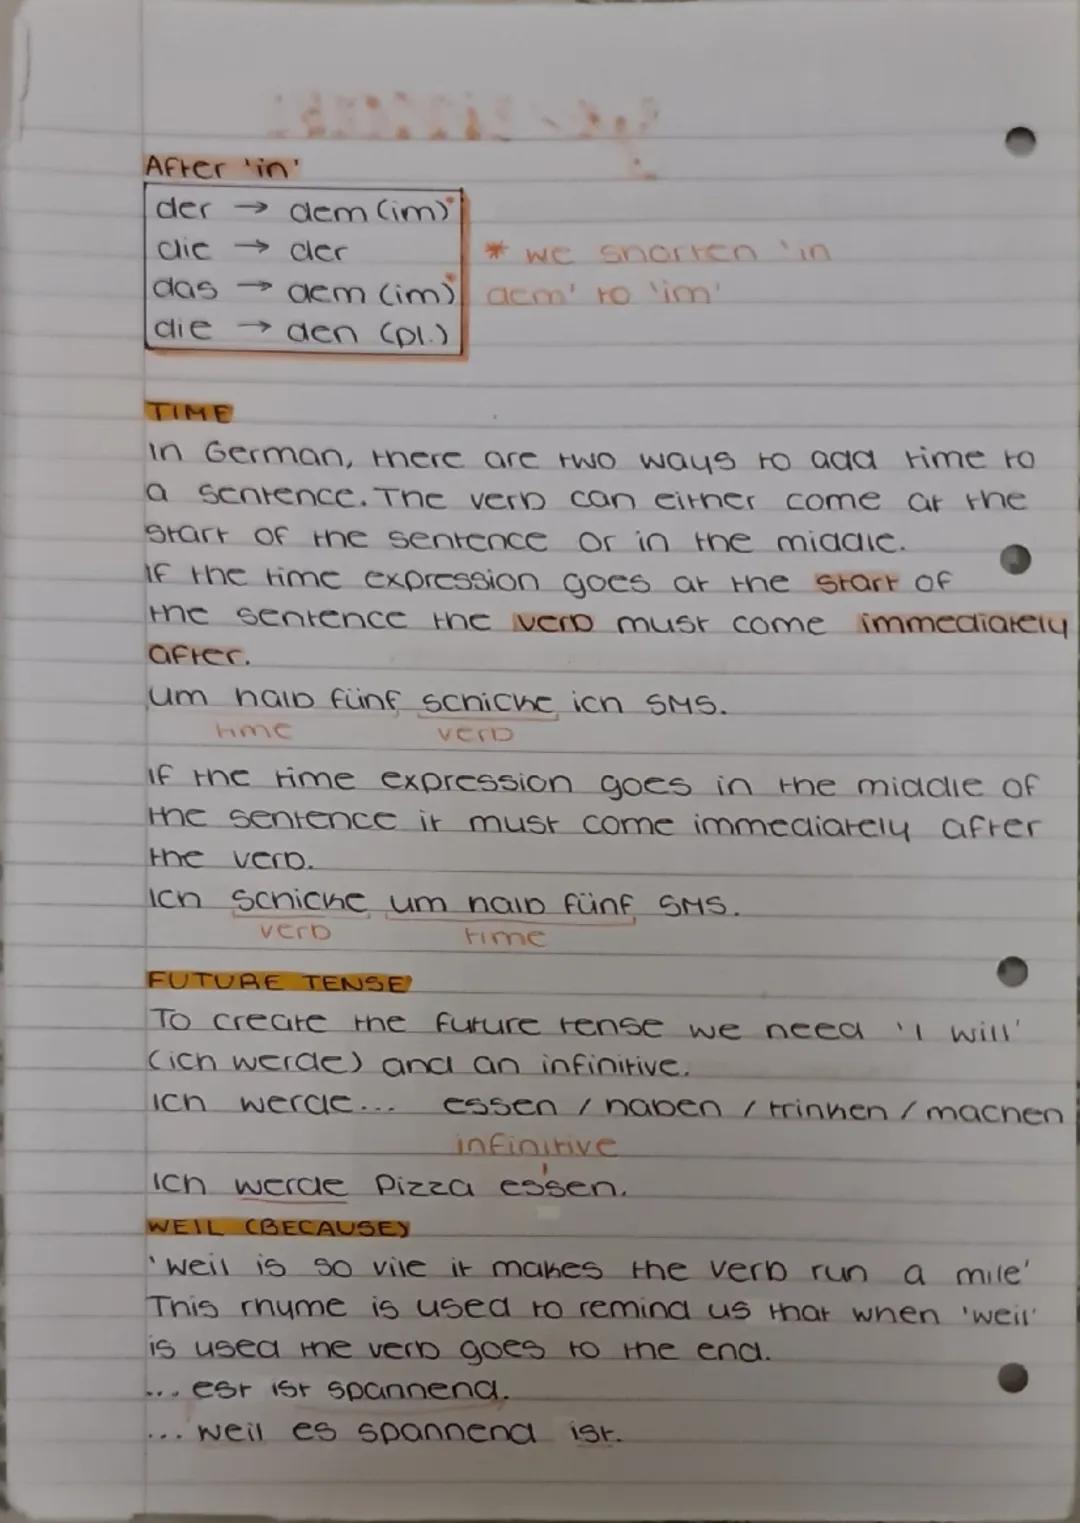 After 'in'
der → dem (im)*
die → der
* we shorten 'in
das → dem (im)*
dem' to 'im'
die → den (pl.)
TIME
In German, there are two ways to add time to
a sentence. The verb can either come at the
start of the sentence or in the middle.
If the time expression goes at the start of
the sentence the verb must come immediately
after.
um halb fünf schicke ich SMS.
time verb
If the time expression goes in the middle of
the sentence it must come immediately after
the verb.
Ich schicke um halb fünf SMS.
verb time
FUTURE TENSE
To create the future tense we need 'I will'
(ich werde) and an infinitive.
Ich werde... essen / haben / trinken / machen
infinitive
Ich werde Pizza essen.
WEIL (BECAUSE)
'Weil is so vile it makes the verb run a mile'
This rhyme is used to remind us that when 'weil'
is used the verb goes to the end.
... est ist spannend.
... weil es spannend ist.